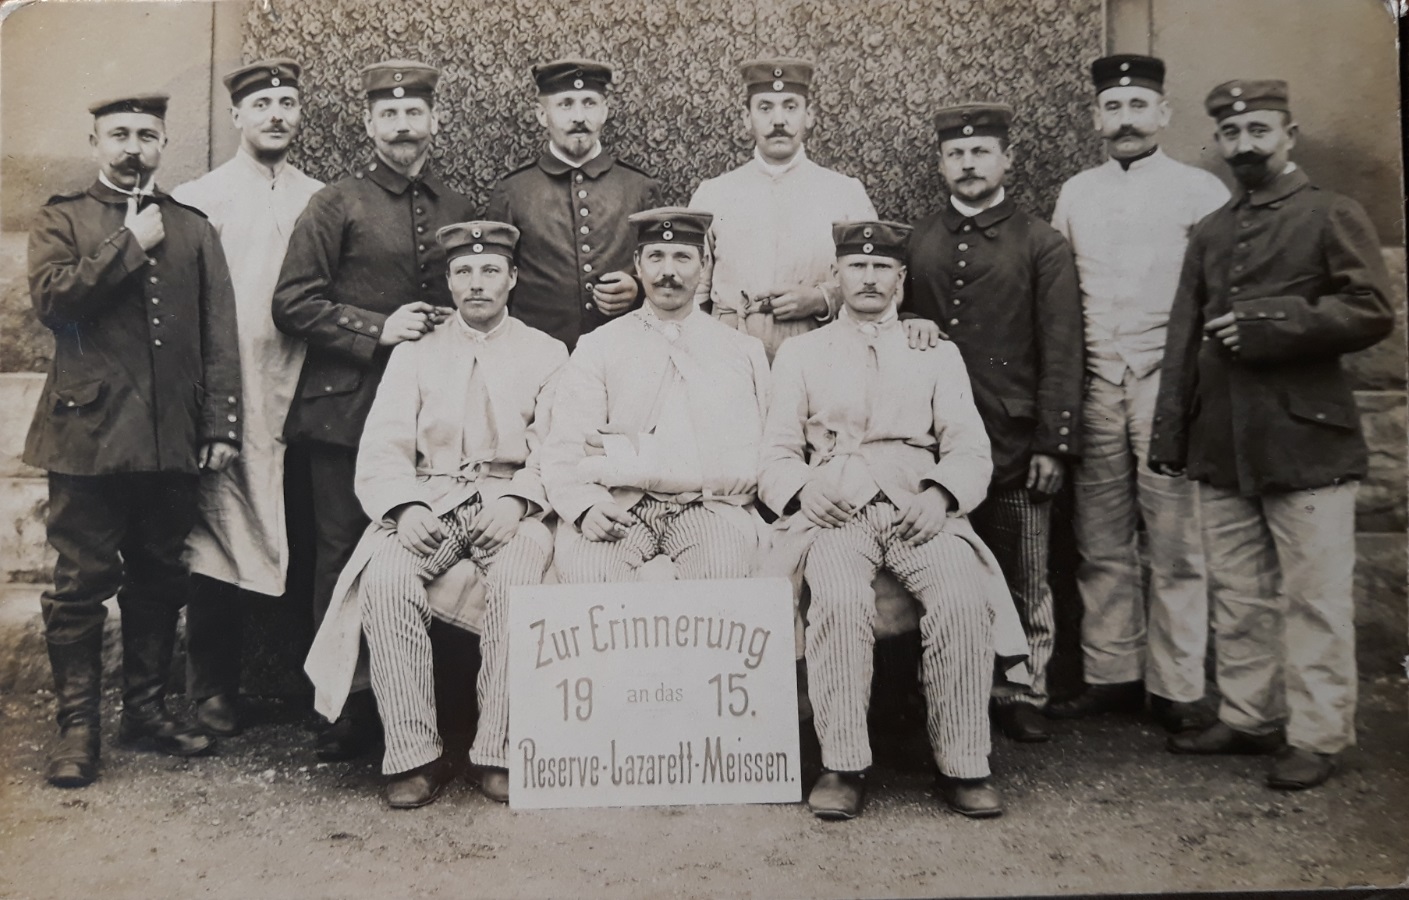 Zur Erinnerung
19 an das 15.
Reserve-Lazarett-Meissen.